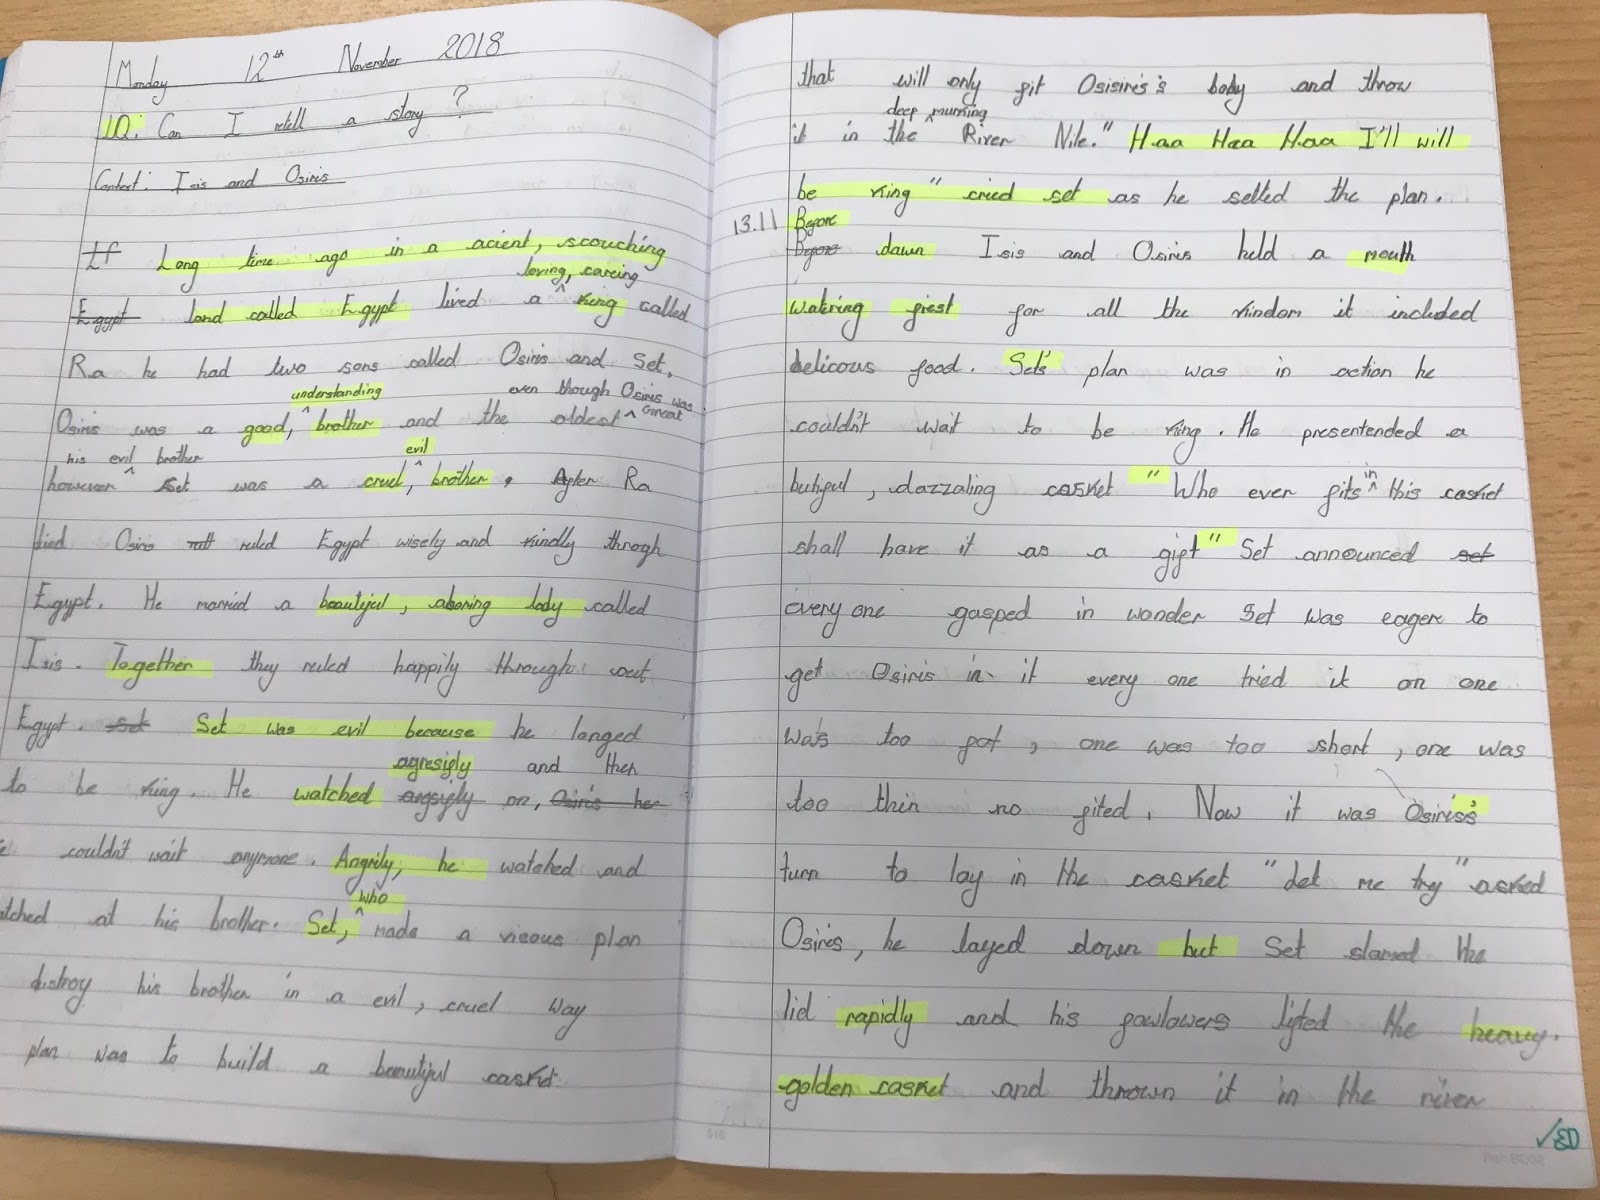 Monday 12th November 2018
LO: Can I retell a story?
Context: Isis and Osiris
If Long time ago in a acient, scouching
loving, careing
Egypt land called Egypt lived a ^ king called
Ra he had two sons called Osiris and Set,
understanding even though Osiris was
Osiris was a good, ^ brother and the oldest ^ Great
his evil brother evil
however ^ Set was a cruel, ^ brother. After Ra
died Osiris ruled Egypt wisely and kindly throgh
Egypt. He married a beautiful, aboring lady called
Isis. Together they ruled happily through out
Egypt. set Set was evil because he longed
agresigly and then
to be king. He watched angsigly on, Osiris he
couldn't wait anymore. Angrily, he watched and
who
atched at his brother. Set, ^ made a vicous plan
distroy his brother in a evil, cruel way
plan was to build a beautiful casket
that will only fit Osisiris's body and throw
deep murking
it in the ^ River Nile." Haa Haa Haa I'll will
be king" cried set as he selted the plan.
13.11 Before
Before dawn Isis and Osiris held a mouth
watering fiest for all the kindom it included
delicous food. Set's plan was in action he
couldn't wait to be king. He presentended a
butiful, dazzaling casket "Who ever fits ^ this casket
in
shall have it as a gift" Set announced set
every one gasped in wonder Set was eager to
get Osiris in it every one tried it on one
was too fat, one was too short, one was
too thin no fited. Now it was Osiris's
turn to lay in the casket "Let me try" asked
Osiris, he layed down but Set slamed the
lid rapidly and his fowlowers lifted the heavy.
golden casket and thrown it in the river